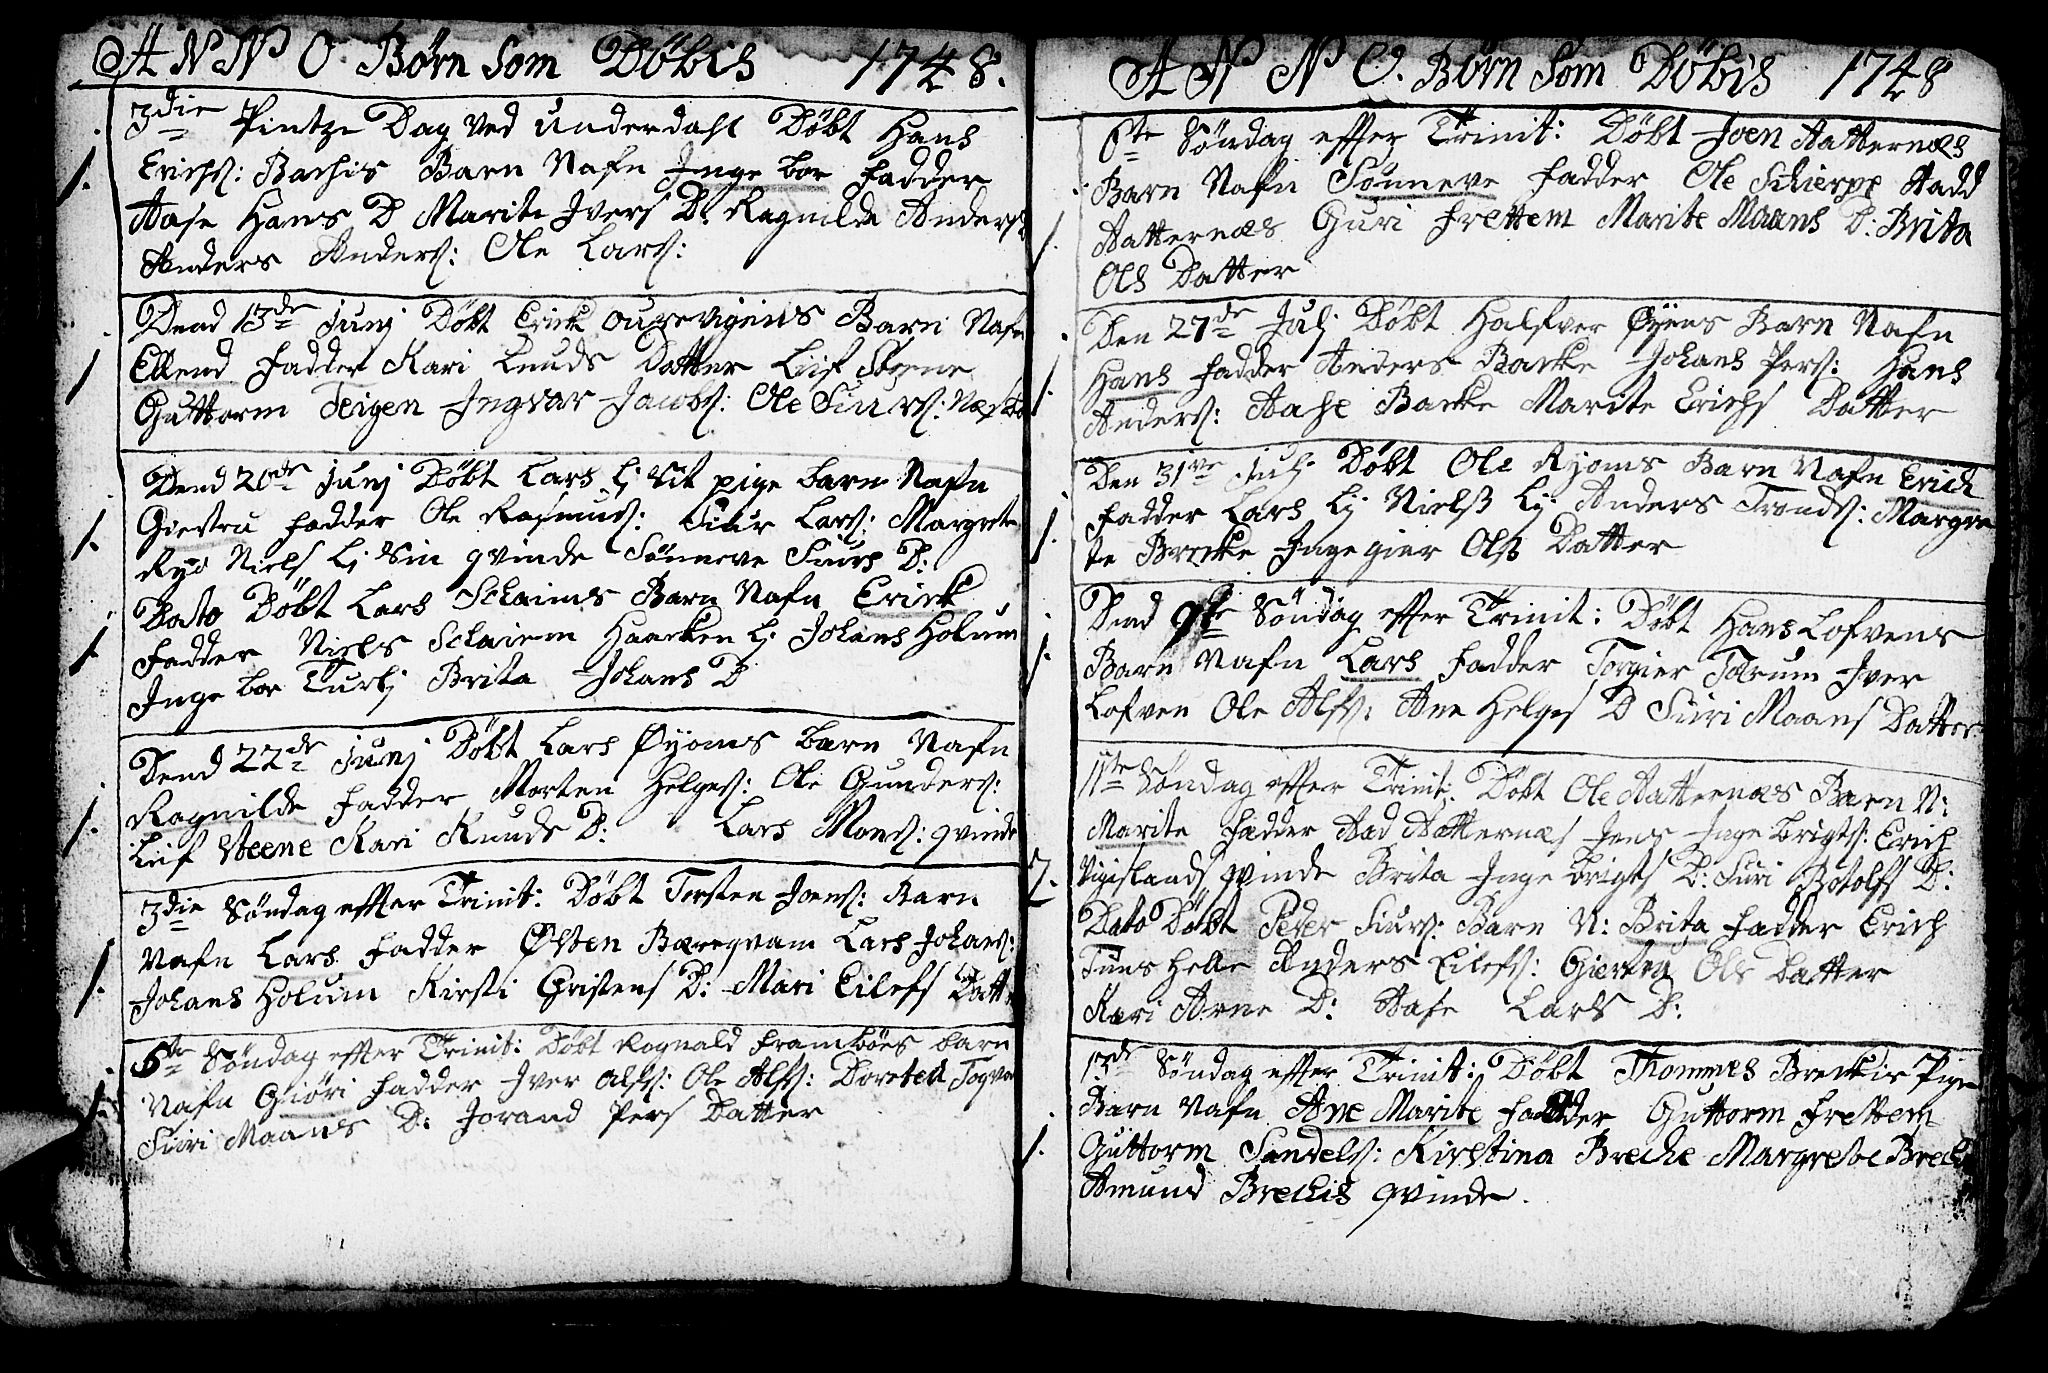 ANNO Børn som Döbis 1748.
3die Pintze Dag ved Underdahl Döbt Hans
1. Erichs: Bachis Barn Nafn Inge bor fadder
Aase Hans D Marite Ivers D: Ragnilde Anders
Anders Anders: Ole Lars:
Dend 13de Junj Döbt Erick Barn Nafn
1 Ellend fadder Kari Knuds Datter Liif Steene
Guttorm Teigen Ingvar Jacobs: Ole Siurs:
Dend 20de Junj Döbt Lars Lj pige barn Nafn
1. Giertru fadder Ole Rasmus: Siur Lars: Margrete
Ryo Niels Lj qvinde Sönneve Siurs D:
Dato Döbt Lars Schaims Barn Nafn Erick
1. fadder Niels Schaiem Haacken Lj Johans Holum
Inge bor Turlj Brita Johans D
Dend 22de Junj Döbt Lars Øyoms barn Nafn
1. Ragnilde fadder Morten Helges: Ole Gunders:
Liif Steene Kari Knuds D: Lars Mons: qvinde
3die Söndag effter Trinit: Döbt Torsten Joens: Barn
Nafn Lars fadder Østen Bæreqvam Lars Johans:
1. Johans Holum Kirsti Gristens D: Mari Eilefs Datt
5te Söndag effter Trinit: Döbt Rognald Framböes barn
1. Nafn Giöri fadder Iver Alfs: Ole Alfs: Doreted
Siri Maans D: Jorand Pers Datter
ANNO. Børn som Döbis 1748
6te Söndag effter Trinit: Döbt Joen Aatternæs
Barn Nafn Sönneve fadder Ole Schierpe Aadd
1. Aatternæs Guri Frettem Marite Maans D: Brita
Ols Datter
Den 27de Julj Döbt Halfver Øyens Barn Nafn
1. Hans fadder Anders Backe Johans Pers: Hans
Anders: Aase Backe Marite Erichs Datter
Den 31te Julj Döbt Ole Ryoms Barn Nafn Erich
1. fadder Lars Lj Niels Lj Anders Tronds: Margre
te Brecke Ingegier Ols Datter
Dend 9te Söndag effter Trinit: Döbt Hans Lofvens
1. Barn Nafn Lars fadder Torgier Iver
Lofven Ole Alfs: Ane Helges D Siri Maans Datter
11te Söndag effter Trinit. Döbt Ole Aatternæs Barn N:
Marite fadder Aad Aatternæs Jens Inge brigts: Erich
2. Vigislands qvinde Brita Inge brigts D: Siri Botolfs D:
Dato Döbt Peder Siurs: Barn N: Brita fadder Erich
Tuns helle Anders Eilefs: Giertru Ols Datter
Kari Arne D: Aase Lars D:
13de Söndag effter Trinit: Döbt Thommes Breckis Pige
Barn Nafn Ane Marite fadder Guttorm Frettem
1. Guttorm Sandels: Kirstina Breche Margrete Breche
Amund Brechis qvinde.